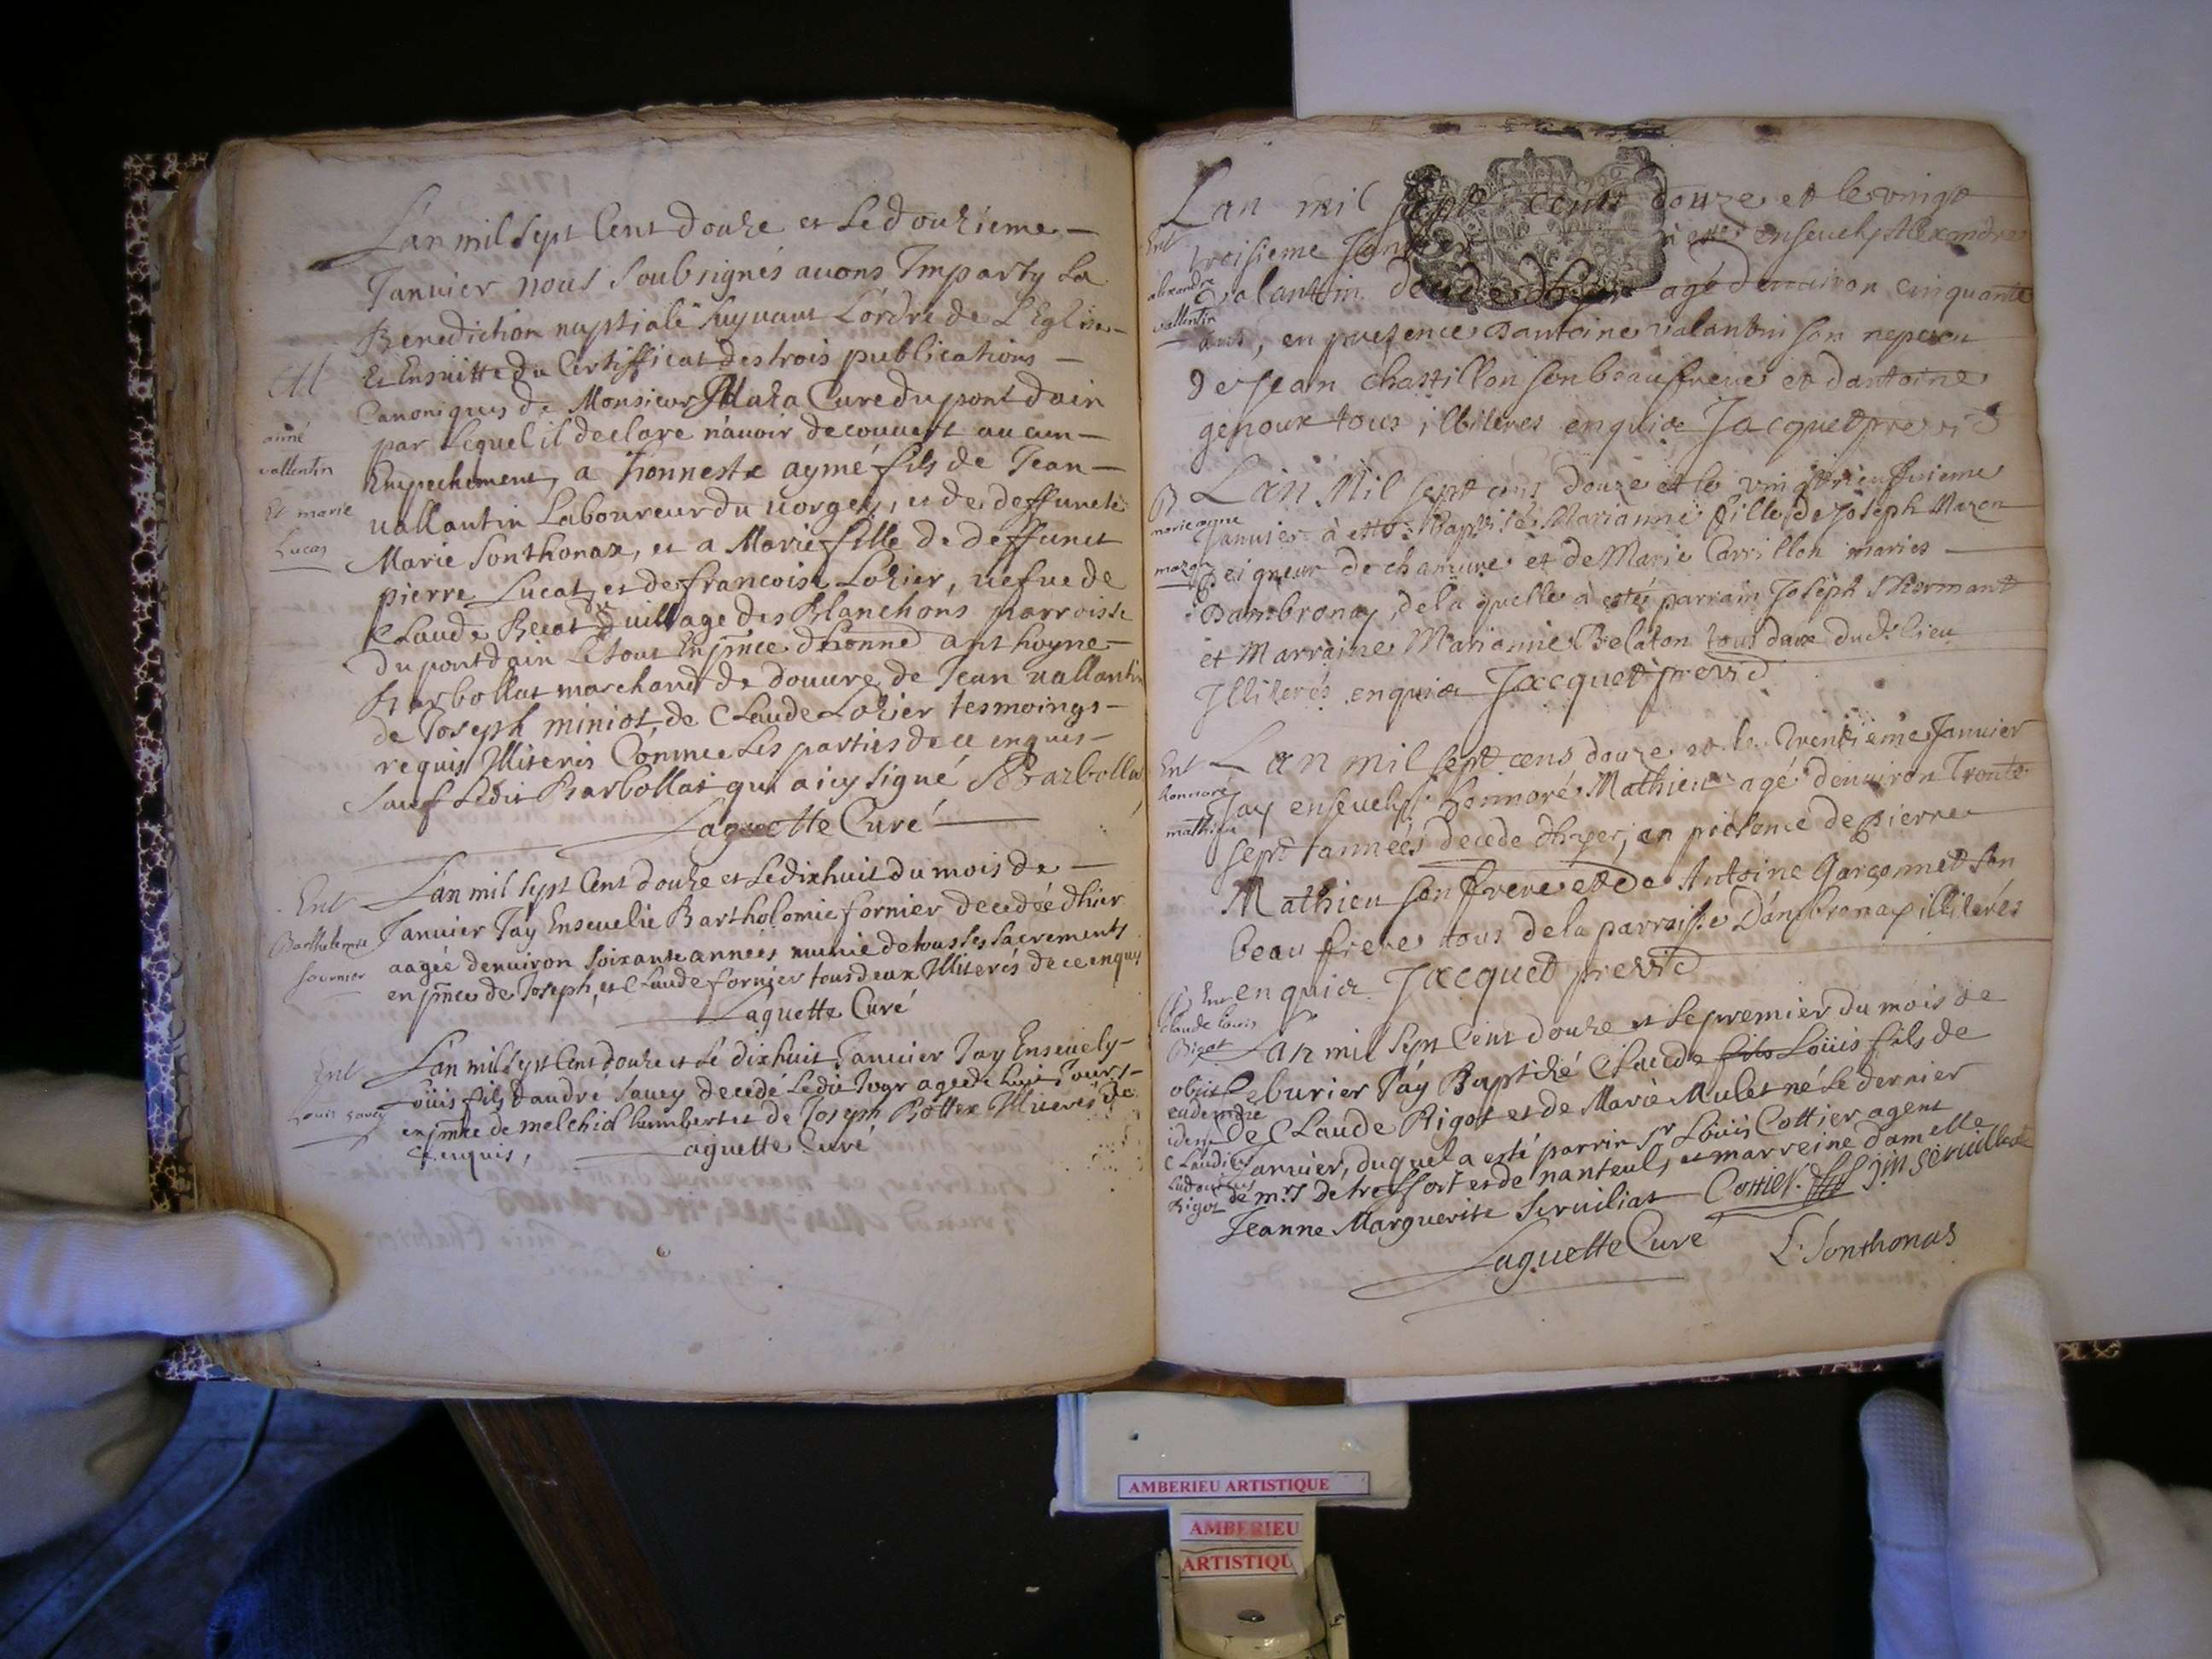 L'an mil sept Cent douze et Le douzieme
Januier nous soubsignés auons Imparty La
Benediction nuptiale suyuant L'ordre de L'Eglise
Et Ensuitte du Certifficat des trois publications
Canoniques de Monsieur Curé du pont dain
par Lequel il declare n'auoir decouuert aucun
Empechement, a honneste aymé fils de Jean
uallantin Laboureur du uorgey, et de deffuncte
Marie Sonthonax, et a Marie fille de deffunct
pierre Lucat, et de francoise Lozier, uefue de
Claude Recat du uillage des Blanchons parroisse
du pont dain Le tout En pnce d'honne anthoyne
Barbollat marchand de douure de Jean uallantin
de Joseph miniot, de Claude Lozier tesmoings
requis Illiteris Comme Les parties de ce enquis
sauf Ledit Barbollat qui a icy signé Barbollat
Laguette Curé
aimé
vallentin
Et marie
Lucas
L'an mil sept Cent douze et Le dixhuit du mois de
Januier J'ay Enseuelie Bartholomie fornier decedée d'hier
aagée denuiron soixante années munie de tous les sacrements
en pnce de Joseph, et Claude fornier tous deux Illiterés de ce enquis
Laguette Curé
Ent
Barthelemie
fournier
L'an mil sept Cent douze et Le dixhuit Januier J'ay Enseuely
Loüis fils d'andré sauey decedé Ledit Jour agé de huit Jours
en pnce de melchiol humbert et de Joseph Bottex Illiterés de
ce enquis, Laguette Curé
Ent
Louis savey
Lan mil sept cents douze et le vingt
troisieme Januier a esté enseuely Alexandre
valantin decede d'hyer agé denuiron cinquante
ans, en presence d'antoine valantin son nepueu
de Jean chastillon son beaufrere et dantoine
genoux tous illiteres enquis Jacquet pre vic
Ent
alexandre
vallentin
L'an Mil sept cens douze et le vingtneuffuieme
Januier à esté Baptisée Marianne fille de Joseph Mazon
Peigneur de chanure et de Marie Carrillon mariés
Dambronay, de la quelle à esté parrain Joseph Shermant
et Marraine Marianne Belaton tous deux dud. lieu
Illiterés enquis Jacquet pre vic
B
marieanne
mazon
Lan mil sept cens douze et le trentieme Januier
J'ay enseuely honnoré Mathieu agé denuiron Trente
sept années decede d'hyer, en présence de Pierre
Mathieu son frere et de Antoine Garçonnet son
beau frere tous de la parroisse D'ambronay illiterés
enquis Jacquet pre vic
Ent
honnoré
mathieu
Lan mil sept Cent douze et Le premier du mois de
feburier J'ay Baptizé Claude fils Loüis fils de
de Claude Rigot et de Marie Mulet né Le dernier
Januier, duquel a esté parrin Sr Loüis Cottier agent
de mrs de treffort et de nanteul, et marreine damelle
Jeanne Marguerite Seruilias Cottier
Laguette Curé L. Sonthonas
B Ent
Claude Louis
Rigot
obiit
eadem die
idem
Claudius
Ludovicus
Rigot
AMBERIEU ARTISTIQUE
AMBERIEU
ARTISTIQU